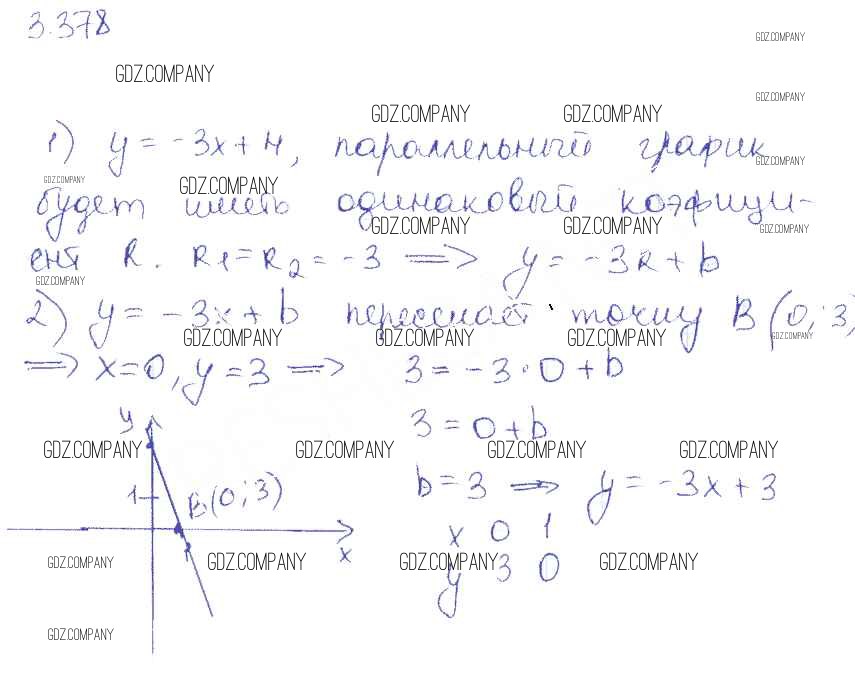 3.378
GDZ.COMPANY
GDZ.COMPANY
GDZ.COMPANY
GDZ.COMPANY GDZ.COMPANY
1) y = -3x + 4, параллельный график
GDZ.COMPANY
GDZ.COMPANY GDZ.COMPANY
будет иметь одинаковый коэфици-
GDZ.COMPANY GDZ.COMPANY GDZ.COMPANY
ент R. R1 = R2 = -3 => y = -3R + b
GDZ.COMPANY
2) y = -3x + b пересекает точку B (0; 3)
GDZ.COMPANY GDZ.COMPANY GDZ.COMPANY GDZ.COMPANY
=> x=0, y = 3 => 3 = -3·0 + b
y 3 = 0 + b
GDZ.COMPANY GDZ.COMPANY GDZ.COMPANY GDZ.COMPANY
b = 3 => y = -3x + 3
1 B(0; 3)
x 0 1
x
1
GDZ.COMPANY GDZ.COMPANY GDZ.COMPANY GDZ.COMPANY
y 3 0
GDZ.COMPANY